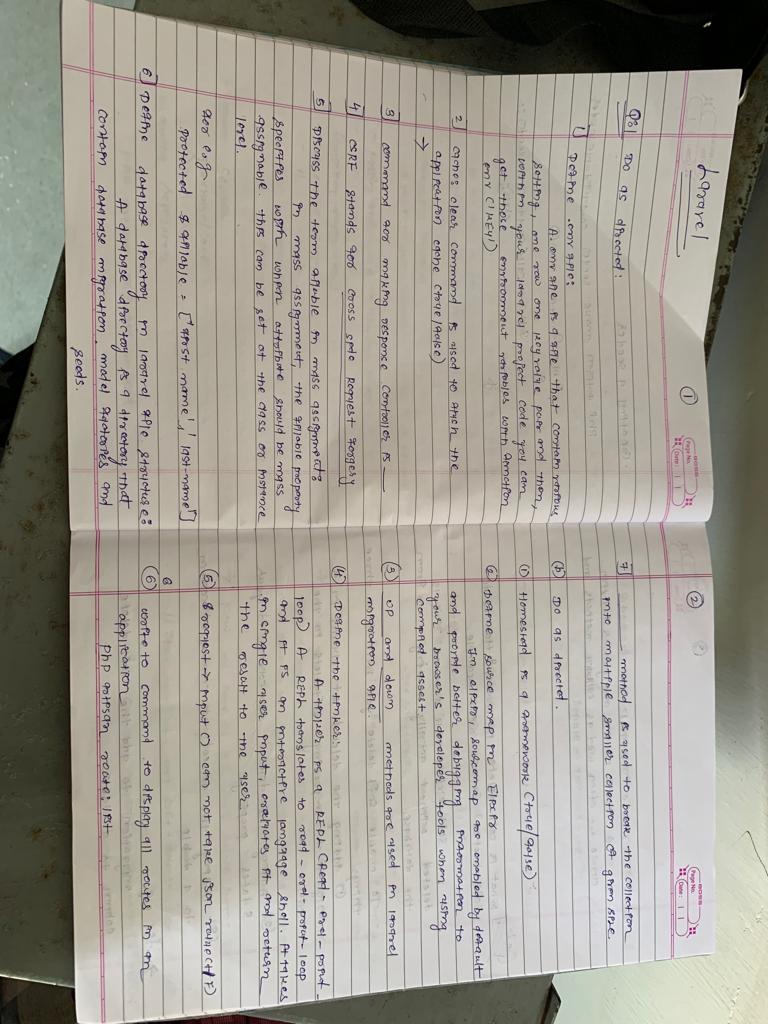 Laravel
①
BOSS
Page No.
Date: / /
Q:1 Do as directed:
1] Define .env file:
A. env file is a file that contain various
setting, one row one key value pair and then,
within your laravel project code you can
get those environment variables with function
env ('KEY')
2] cache: clear command is used to flush the
application cache (true/false)
→
3] command for making response controller is ___
4] CSRF stands for cross site Request forgery
5] Discuss the term fillable in mass assignment:
In mass assignment, the fillable property
specifies which attribute should be mass
assignable. this can be set at the class or instance
level.
for e.g.
Protected $ fillable = ['first name', 'last-name']
6] Define database directory in laravel file structure:
A database directory is a directory that
contain database migration, model factories and
seeds.
②
BOSS
Page No.
Date: / /
7] ___ method is used to break the collection
into multiple smaller collection of given size.
(b) Do as directed.
① Homestead is a framework (true/false)
② Define source map in Elixir
In elixir, sourcemap are enabled by default
and provide better debugging information to
your browser's developer tools when using
compiled asset
③ up and down methods are used in laravel
migration file.
④ Define the tinker:
A tinker is a REPL (Read - eval - print -
loop) A REPL translates to read - eval - print - loop
and it is an interactive language shell. It takes
in single user input, evaluates it and return
the result to the user
⑤ $ request → input () can not take json value (T/F)
⑥ write to command to display all routes in an
application
php artisan route: list